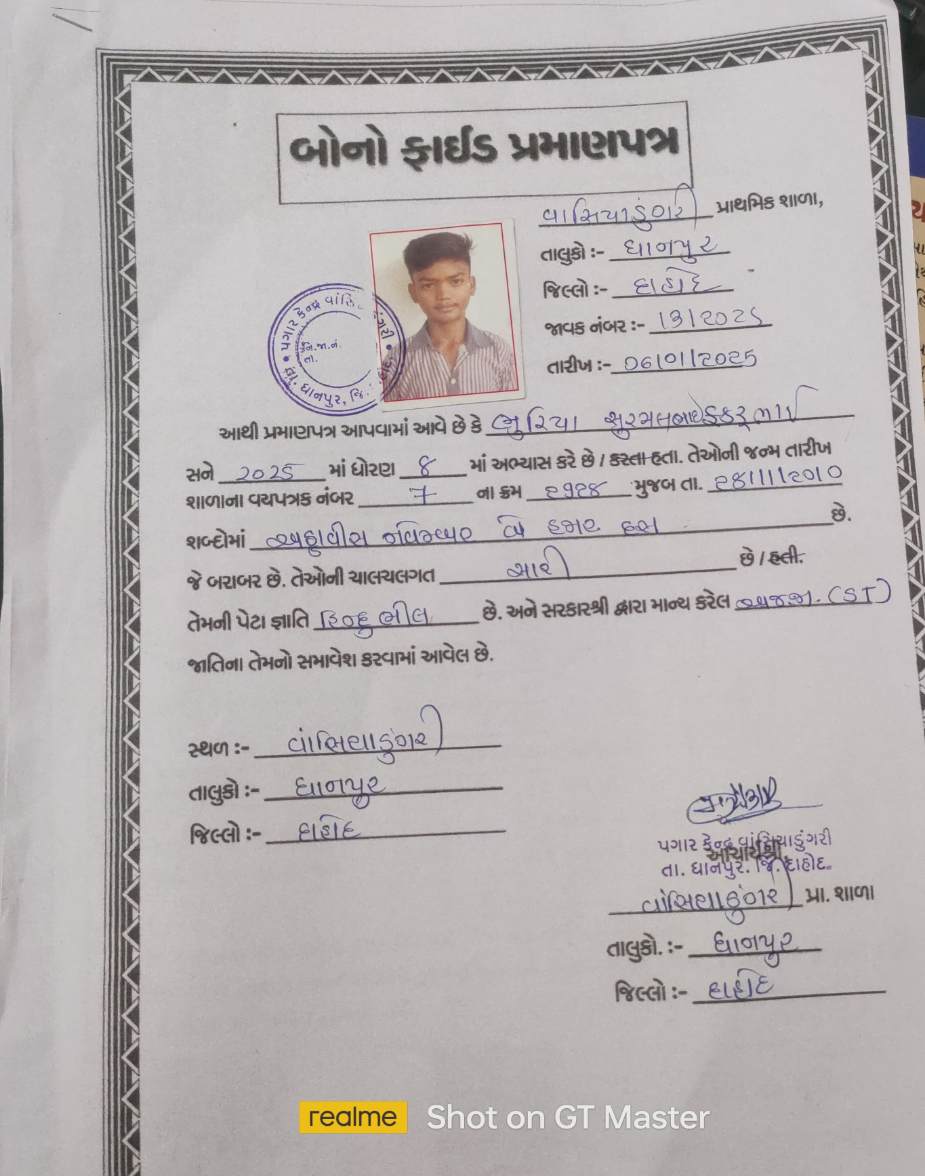 બોનો ફાઈડ પ્રમાણપત્ર
વાસિયાડુંગરી પ્રાથમિક શાળા,
તાલુકો :- ધાનપુર
જિલ્લો :- દાહોદ
જાવક નંબર :- 13/2025
તારીખ :- 06/01/2025
આથી પ્રમાણપત્ર આપવામાં આવે છે કે ભુરિયા
સને 2025 માં ધોરણ 8 માં અભ્યાસ કરે છે / કરતા હતા. તેઓની જન્મ તારીખ
શાળાના વયપત્રક નંબર 7 ના ક્રમ ૨૧૨૪ મુજબ તા. ૨૮/૧૧/૨૦૧૦
શબ્દોમાં અઠ્ઠાવીસ નવેમ્બર બે હજાર દસ છે.
જે બરાબર છે. તેઓની ચાલચલગત સારી છે / હતી.
તેમની પેટા જ્ઞાતિ હિન્દુ ભીલ છે. અને સરકારશ્રી દ્વારા માન્ય કરેલ અ.જ.જા. (ST)
જાતિના તેમનો સમાવેશ કરવામાં આવેલ છે.
સ્થળ :- વાંસિયાડુંગરી
તાલુકો :- ધાનપુર
જિલ્લો :- દાહોદ
પગાર કેન્દ્ર વાંસિયાડુંગરી
આચાર્યશ્રી
તા. ધાનપુર. જિ. દાહોદ.
વાંસિયાડુંગરી પ્રા. શાળા
તાલુકો. :- ધાનપુર
જિલ્લો :- દાહોદ
realme Shot on GT Master